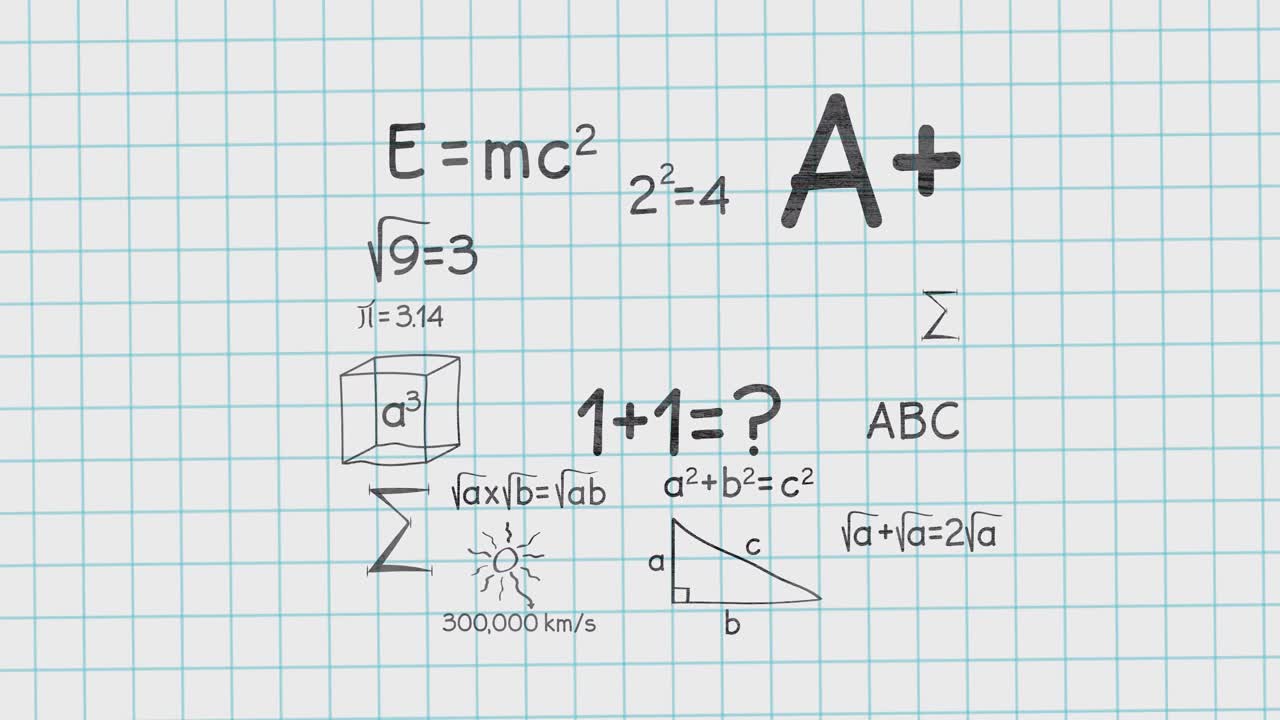 E=mc²
2²=4
A+
√9=3
π=3.14
Σ
a³
1+1=?
ABC
Σ
√a×√b=√ab
a²+b²=c²
√a+√a=2√a
a
c
b
300,000 km/s